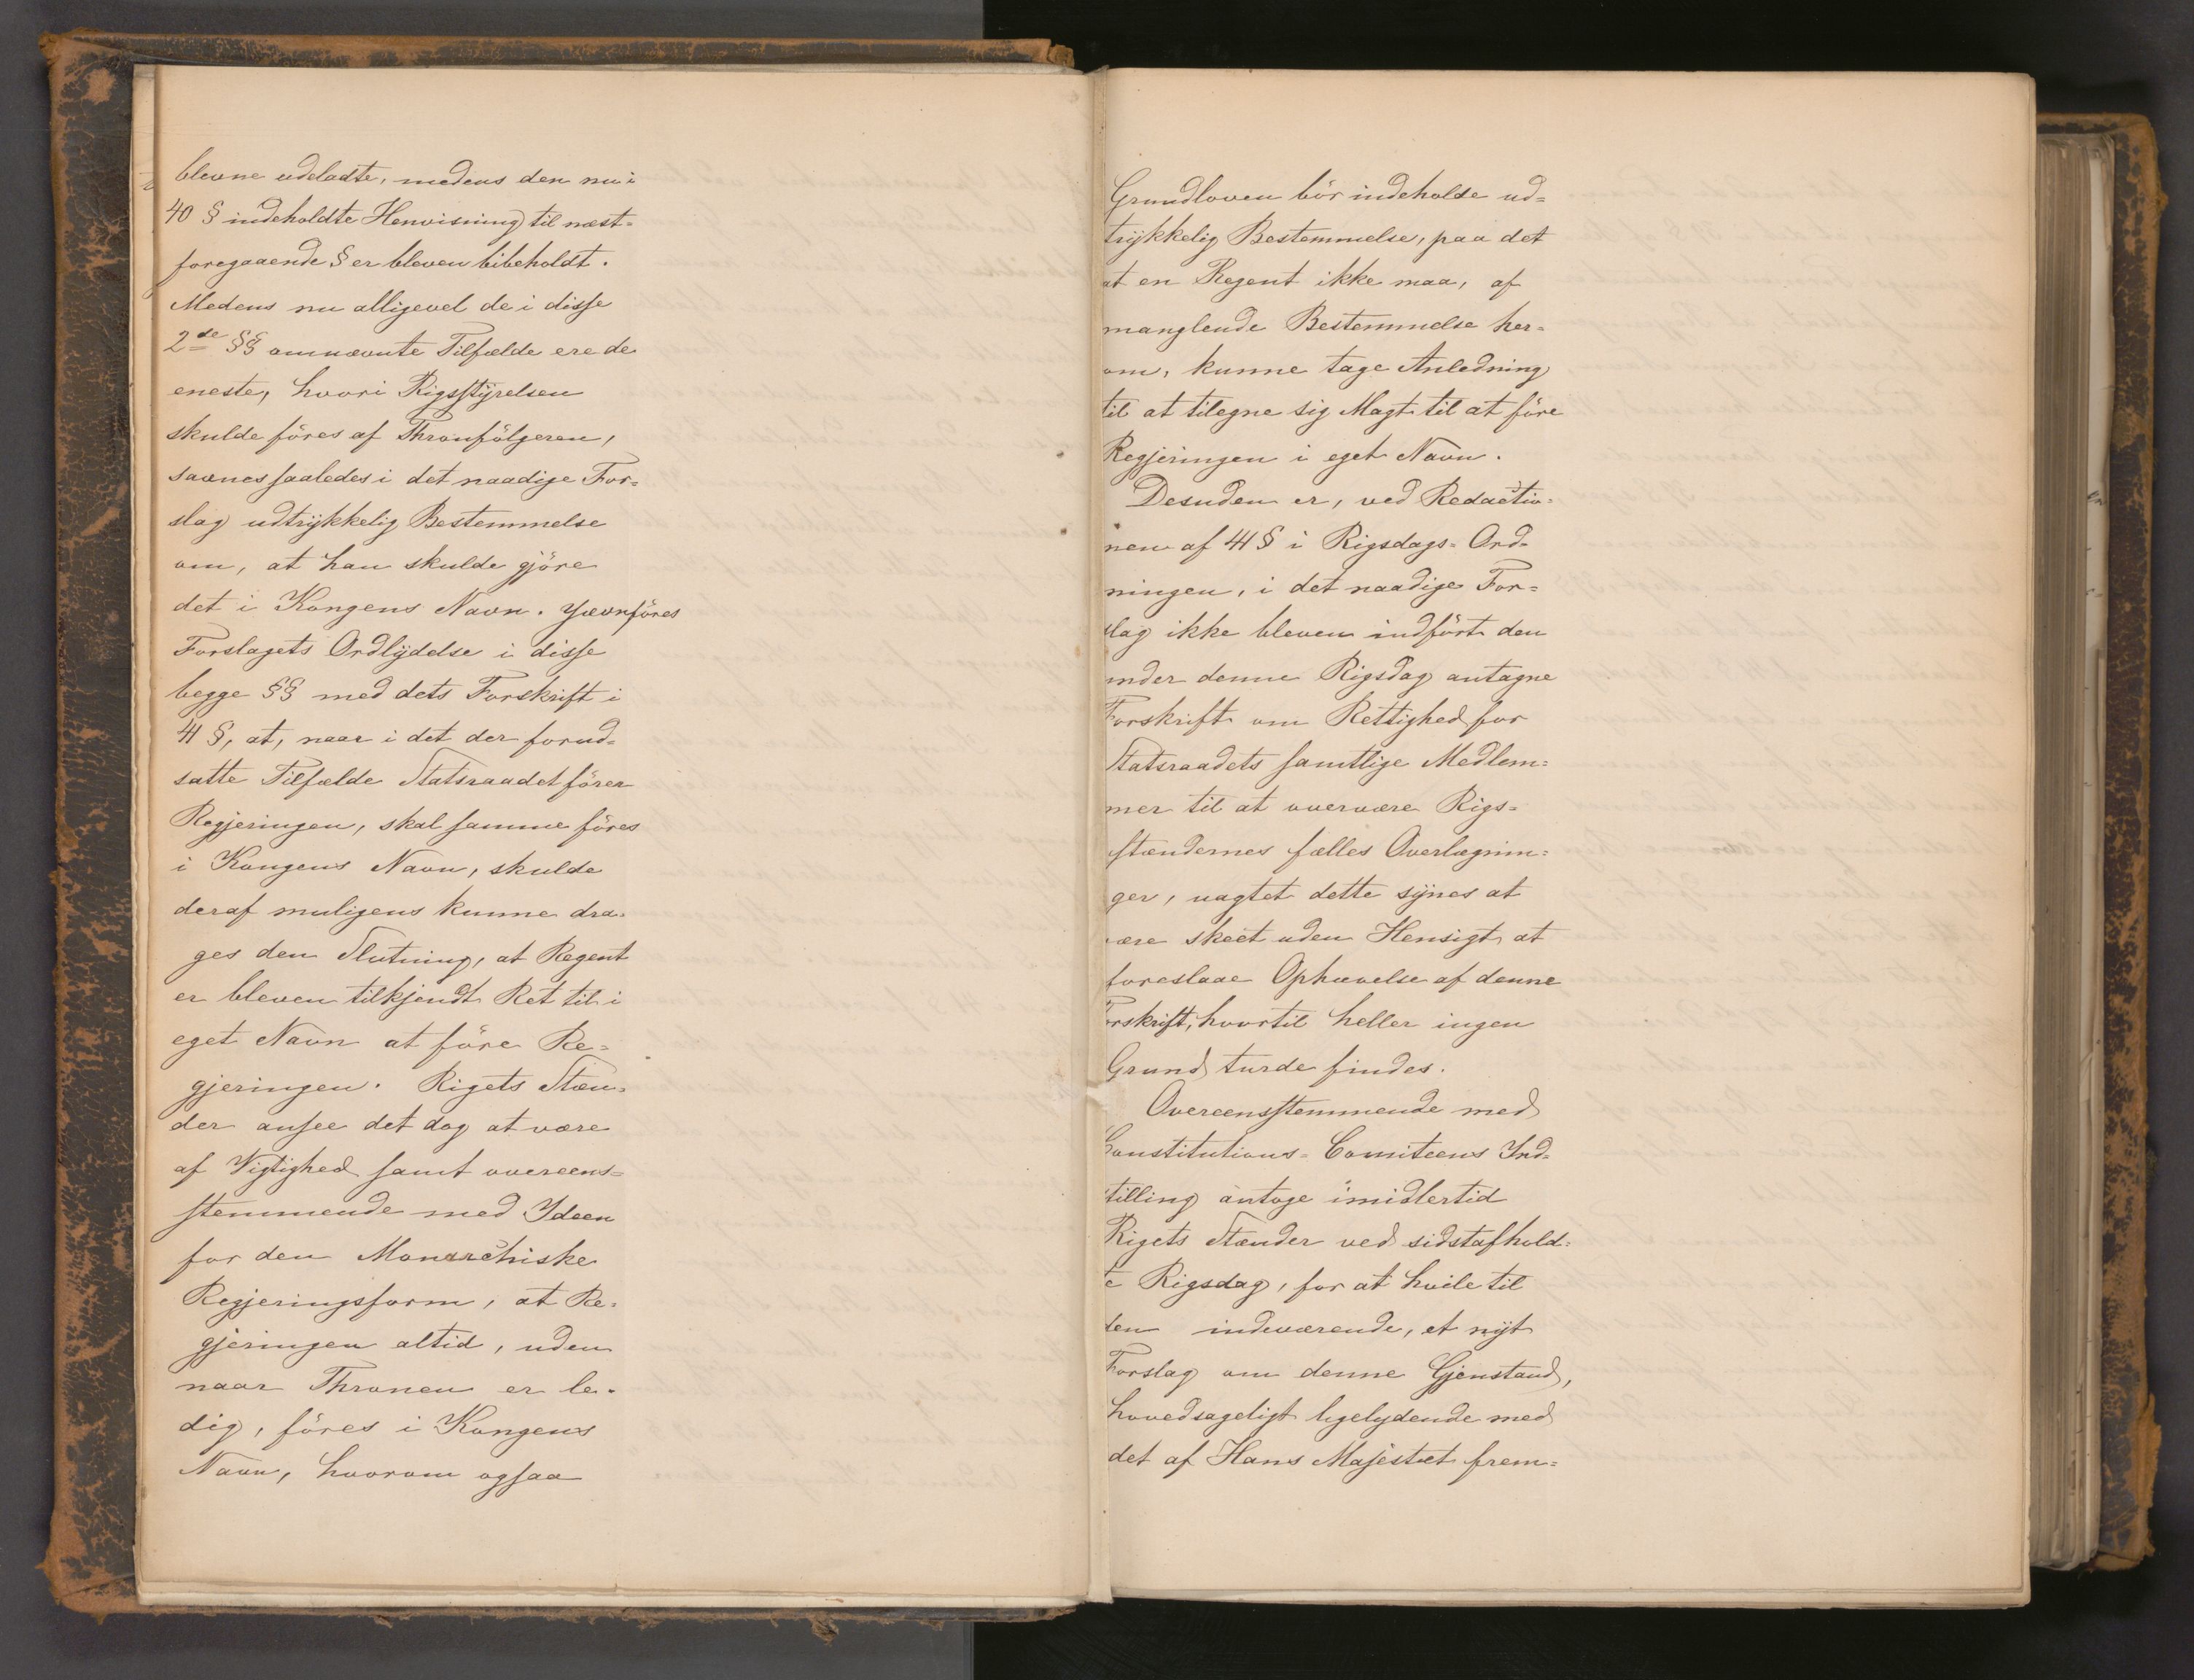 blevne udeladte, medens den nu i
40 § indeholdte Henvisning til næst-
foregaaende § er bleven bibeholdt.
Medens nu alligevel de i disse
2de §§ omnævnte Tilfælde ere de
eneste, hvori Rigsstyrelsen
skulde föres af Thronfölgeren,
savnes saaledes i det naadige For-
slag udtrykkelig Bestemmelse
om, at han skulde gjöre
det i Kongens Navn. Jævnföres
Forslagets Ordlydelse i disse
begge §§ med dets Forskrift i
41 §, at, naar i det der forud-
satte Tilfælde Statsraadet förer
Regjeringen, skal samme föres
i Kongens Navn, skulde
deraf muligens kunne dra-
ges den Slutning, at Regent
er bleven tilkjendt Ret til i
eget Navn at före Re-
gjeringen. Rigets Stæn-
der ansee det dog at være
af Vigtighed samt overeens-
stemmende med Ideen
for den Monarchiske
Regjeringsform, at Re-
gjeringen altid, uden
naar Thronen er le-
dig, föres i Kongens
Navn, hvorom ogsaa
Grundloven bör indeholde ud-
trykkelig Bestemmelse, paa det
at en Regent ikke maa, af
manglende Bestemmelse her-
om, kunne tage Anledning
til at tilegne sig Magt til at före
Regjeringen i eget Navn.
Desuden er, ved Redactio-
nen af 41 § i Rigsdags-Ord-
ningen, i det naadige For-
slag ikke bleven indfört den
under denne Rigsdag antagne
Forskrift om Rettighed for
Statsraadets samtlige Medlem-
mer til at overvære Rigs-
stændernes fælles Overlægnin-
ger, uagtet dette synes at
være skeet uden Hensigt at
foreslaae Ophævelse af denne
Forskrift, hvortil heller ingen
Grund turde findes.
Overeensstemmende med
Constitutions-Comiteens Ind-
stilling antoge imidlertid
Rigets Stænder ved sidstafhold-
te Rigsdag, for at hvile til
den indeværende, et nyt
Forslag om denne Gjenstand,
hovedsageligt ligelydende med
det af Hans Majestæt frem-